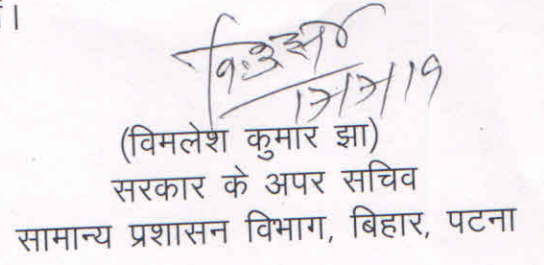 ।
(विमलेश कुमार झा)
सरकार के अपर सचिव
सामान्य प्रशासन विभाग, बिहार, पटना